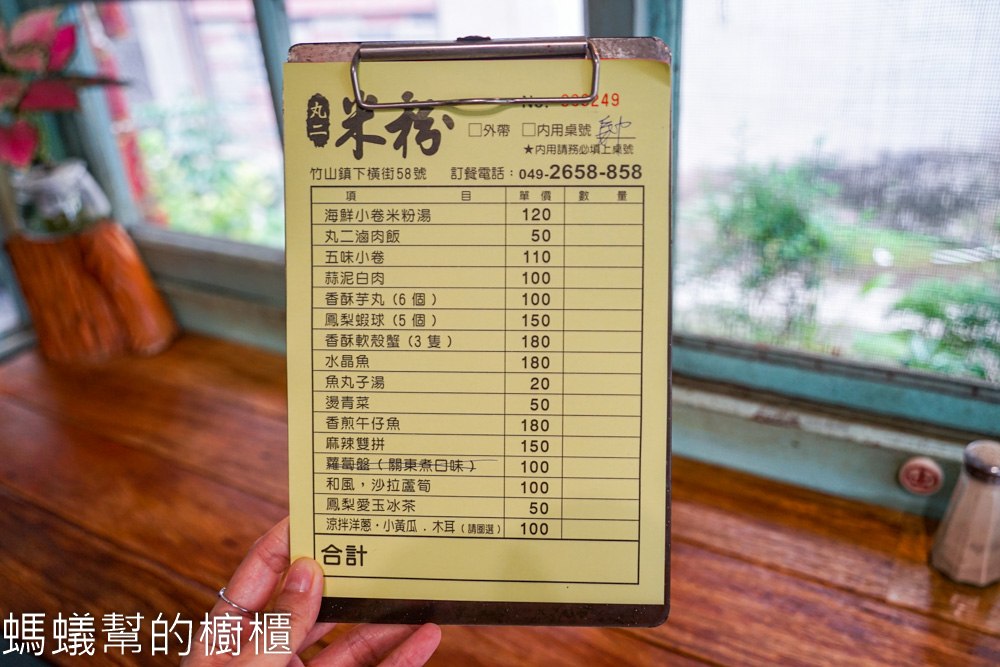 丸二
米粉
No. 000249
□外帶 □內用桌號
★內用請務必填上桌號
竹山鎮下橫街58號 訂餐電話：049-2658-858
項 目 單 價 數 量
海鮮小卷米粉湯 120
丸二滷肉飯 50
五味小卷 110
蒜泥白肉 100
香酥芋丸(6個) 100
鳳梨蝦球(5個) 150
香酥軟殼蟹(3隻) 180
水晶魚 180
魚丸子湯 20
燙青菜 50
香煎午仔魚 180
麻辣雙拼 150
蘿蔔盤(關東煮口味) 100
和風，沙拉蘆筍 100
鳳梨愛玉冰茶 50
涼拌洋蔥・小黃瓜．木耳(請圈選) 100
合計
螞蟻幫的櫥櫃